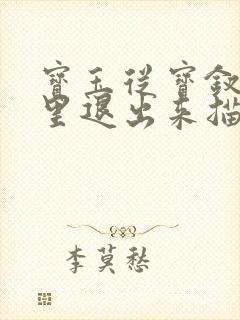 寶玉從寶釵
里退出來描
李莫愁